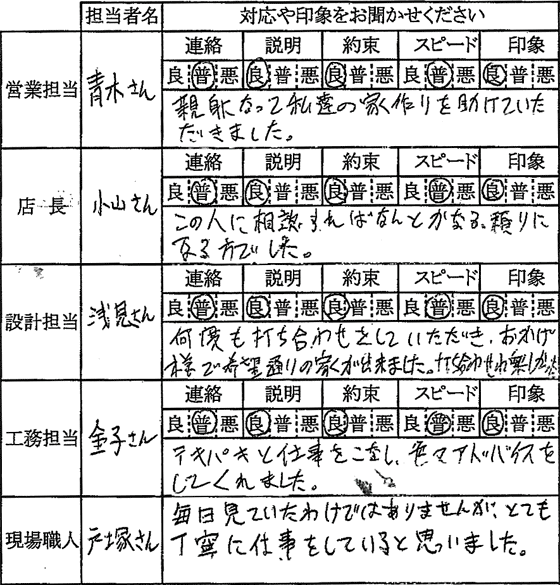 担当者名 対応や印象をお聞かせください
営業担当 青木さん
連絡 説明 約束 スピード 印象
良 普 悪 良 普 悪 良 普 悪 良 普 悪 良 普 悪
親身になって私達の家作りを助けていた
だきました。
店長 小山さん
連絡 説明 約束 スピード 印象
良 普 悪 良 普 悪 良 普 悪 良 普 悪 良 普 悪
この人に相談すればなんとかなる、頼りに
なる方でした。
設計担当 浅見さん
連絡 説明 約束 スピード 印象
良 普 悪 良 普 悪 良 普 悪 良 普 悪 良 普 悪
何度も打ち合わせをしていただき、おかげ
様で希望通りの家が出来ました。打ち合わせも楽しかった
工務担当 金子さん
連絡 説明 約束 スピード 印象
良 普 悪 良 普 悪 良 普 悪 良 普 悪 良 普 悪
テキパキと仕事をこなし、色々アドバイスを
してくれました。
現場職人 戸塚さん
毎日見ていたわけではありませんが、とても
丁寧に仕事をしていると思いました。